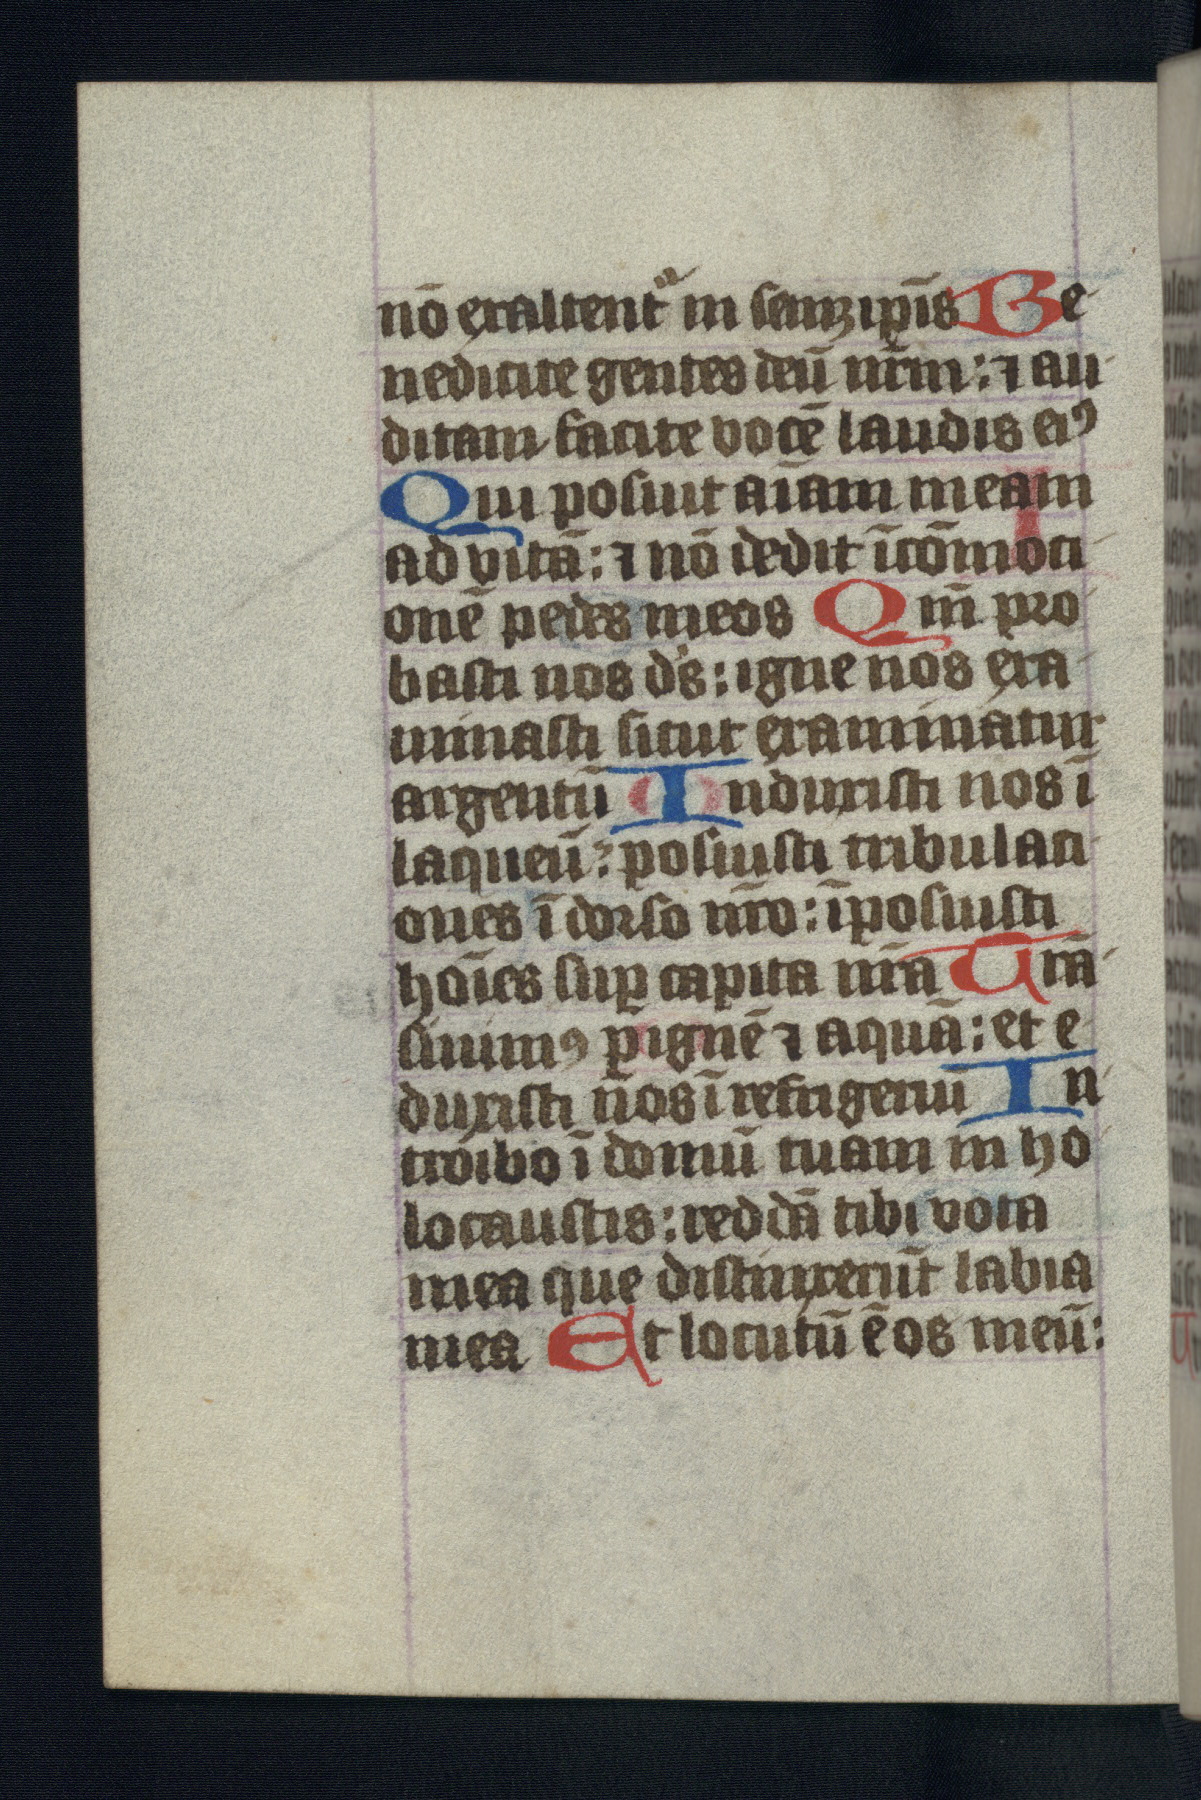 nō exaltent᷑ in semꝫ ip̄is Be
nedicite gentes deū nr̄m : ⁊ au
ditam facite vocē laudis eiꝰ
Qui posuit aīam meam
ad vitā : ⁊ nō dedit ī cōmoci
onē pedes meos Qm̄ pro
basti nos ds̄ : igne nos exa
minasti sicut examinatur
argentū Induxisti nos ī
laqueū : posuisti tribulaci
ones ī dorso nr̄o : īposuisti
hoīes suꝑ capita nr̄a Trā
siuimꝰ ꝑ ignē ⁊ aquā : et e
duxisti nos ī refrigeriū In
troibo ī domū tuam in ho
locaustis : reddā tibi vota
mea que distinxerūt labia
mea Et locutū ē os meū :